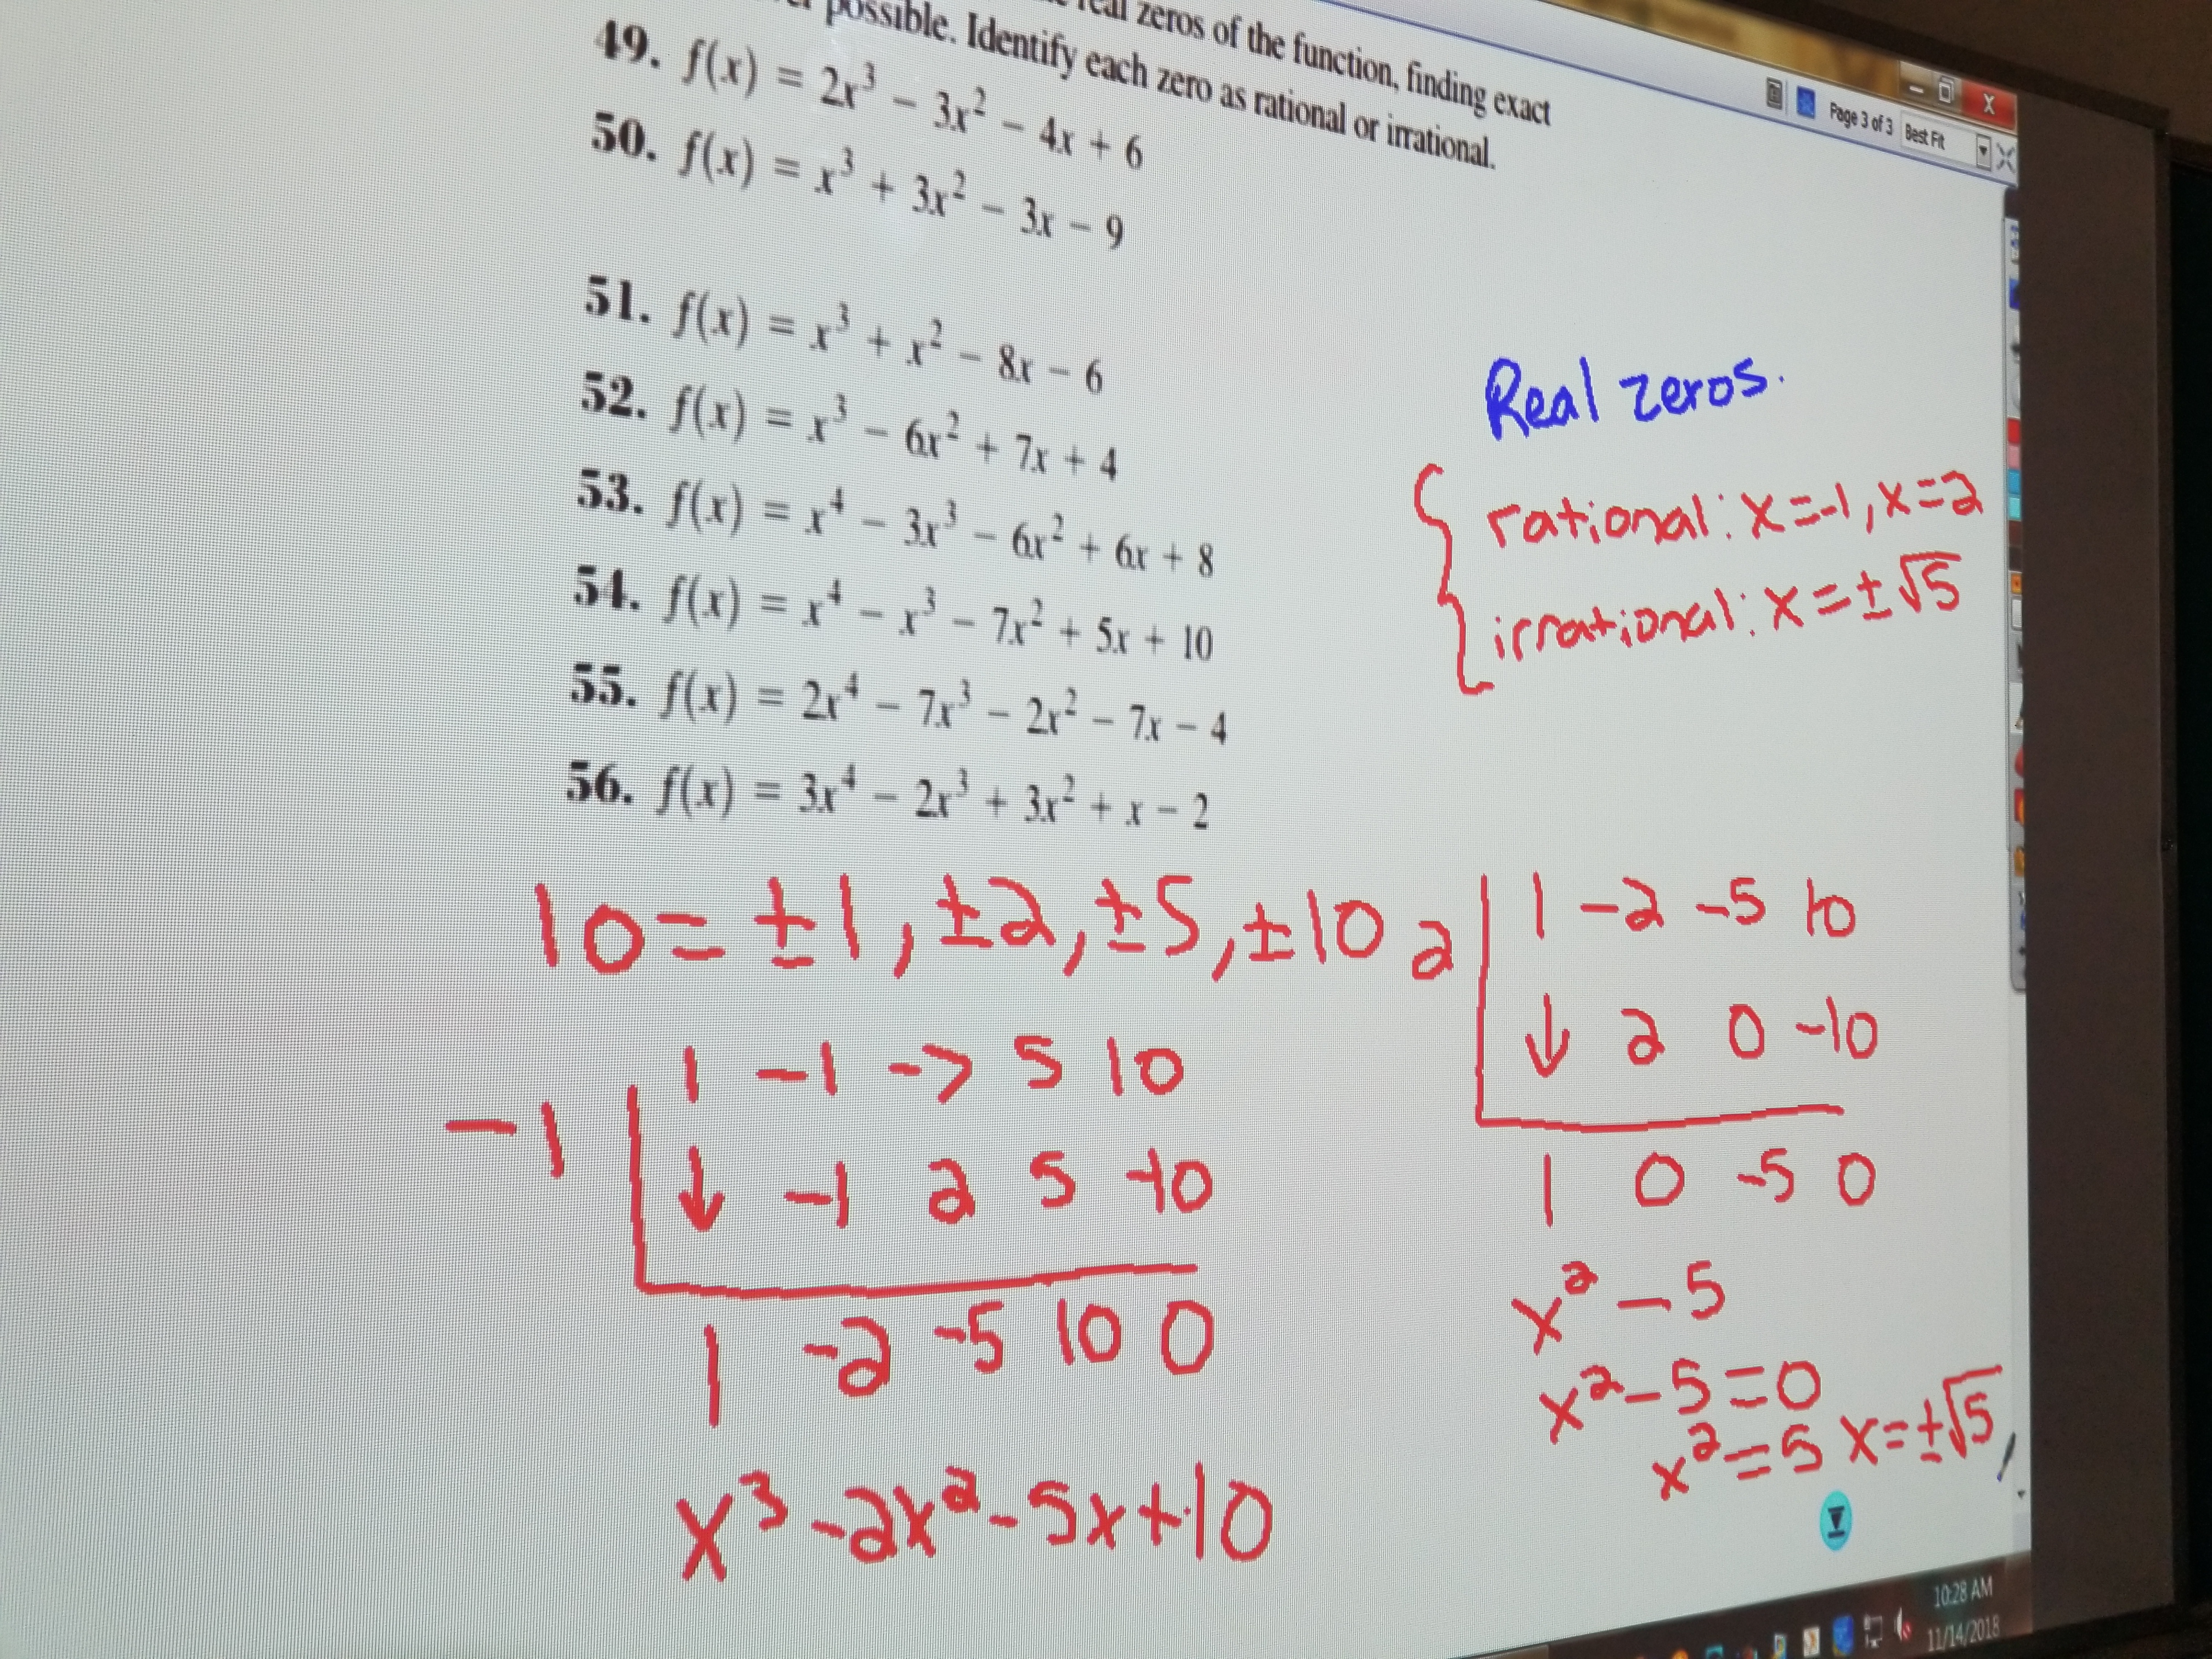 real zeros of the function, finding exact
possible. Identify each zero as rational or irrational.
49. f(x) = 2x³ − 3x² − 4x + 6
50. f(x) = x³ + 3x² − 3x − 9
51. f(x) = x³ + x² − 8x − 6
52. f(x) = x³ − 6x² + 7x + 4
53. f(x) = x⁴ − 3x³ − 6x² + 6x + 8
54. f(x) = x⁴ − x³ − 7x² + 5x + 10
55. f(x) = 2x⁴ − 7x³ − 2x² − 7x − 4
56. f(x) = 3x⁴ − 2x³ + 3x² + x − 2
Page 3 of 3 Best Fit
Real zeros.
rational: x=-1, x=2
irrational: x=±√5
10=±1, ±2, ±5, ±10
-1
1 -1 -7 5 10
↓ -1 2 5 -10
1 -2 -5 10 0
x³-2x²-5x+10
2
1 -2 -5 10
↓ 2 0 -10
1 0 -5 0
x²-5
x²-5=0
x²=5 x=±√5
10:28 AM
11/14/2018